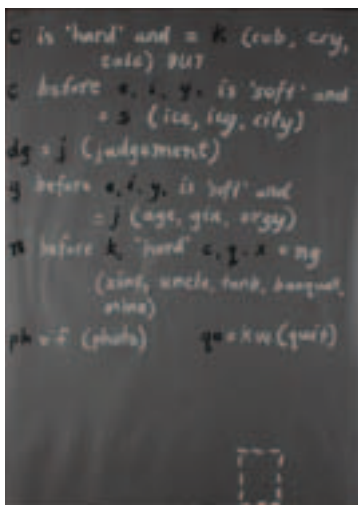 c is 'hard' and = k (cub, cry,
talc) BUT
c before e, i, y, is 'soft' and
= s (ice, icy, city)
dg = j (judgement)
g before e, i, y, is 'soft' and
= j (age, gin, orgy)
n before k, 'hard' c, q, x = ng
(zinc, uncle, tank, banquet,
minx)
ph = f (photo) qu = kw (quit)